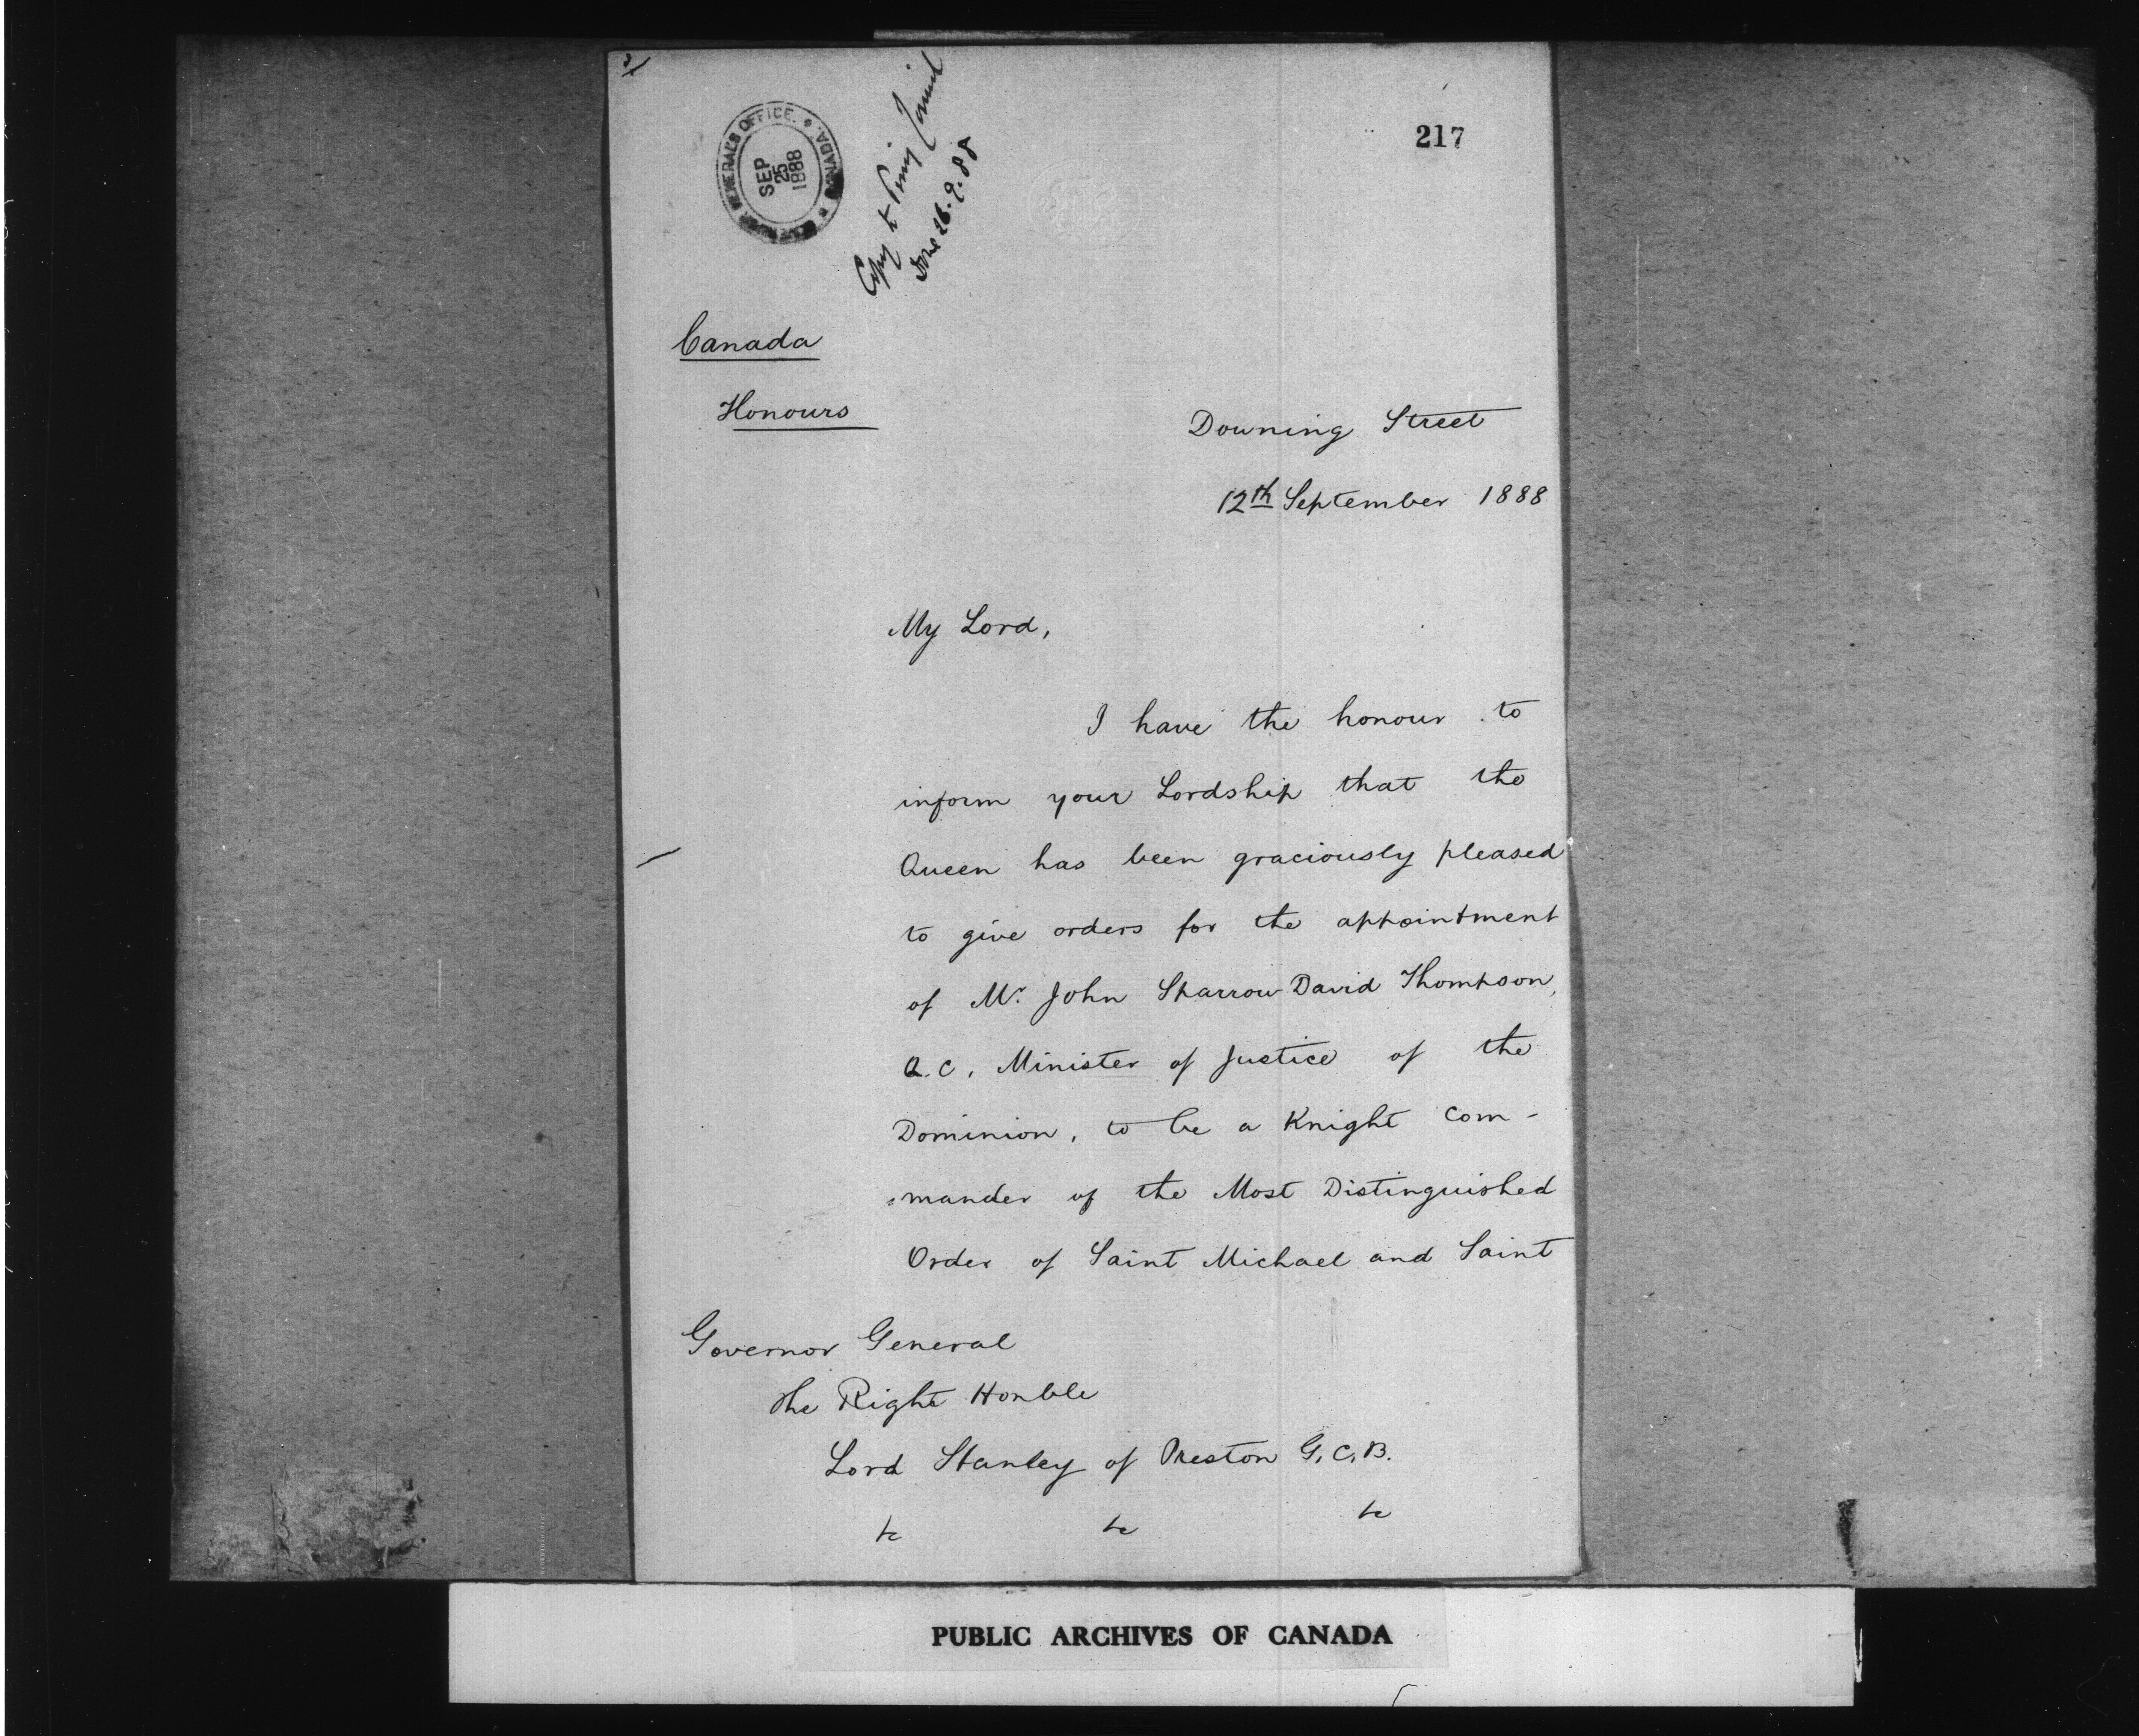 217
GOVERNOR GENERAL'S OFFICE. * CANADA. *
SEP
25
1888
Copy to Privy Council
Done 26.9.88
Canada
Honours
Downing Street
12th September 1888
My Lord,
I have the honour to
inform your Lordship that the
Queen has been graciously pleased
to give orders for the appointment
of Mr. John Sparrow David Thompson,
Q.C. Minister of Justice of the
Dominion, to be a Knight Com-
=mander of the Most Distinguished
Order of Saint Michael and Saint
Governor General
The Right Honble
Lord Stanley of Preston G.C.B.
&c &c &c
PUBLIC ARCHIVES OF CANADA